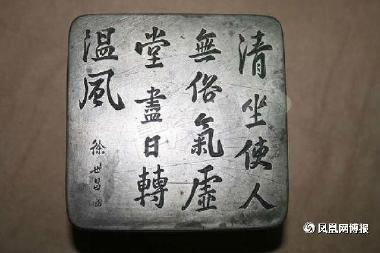 清坐使人
無俗氣虛
堂盡日轉
溫風
徐世昌
凤凰网博报